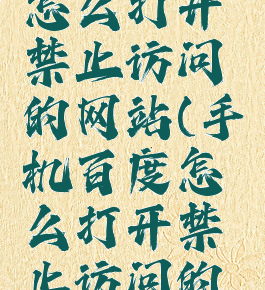 怎么打开
禁止访问
的网站(手
机百度怎
么打开禁
止访问的